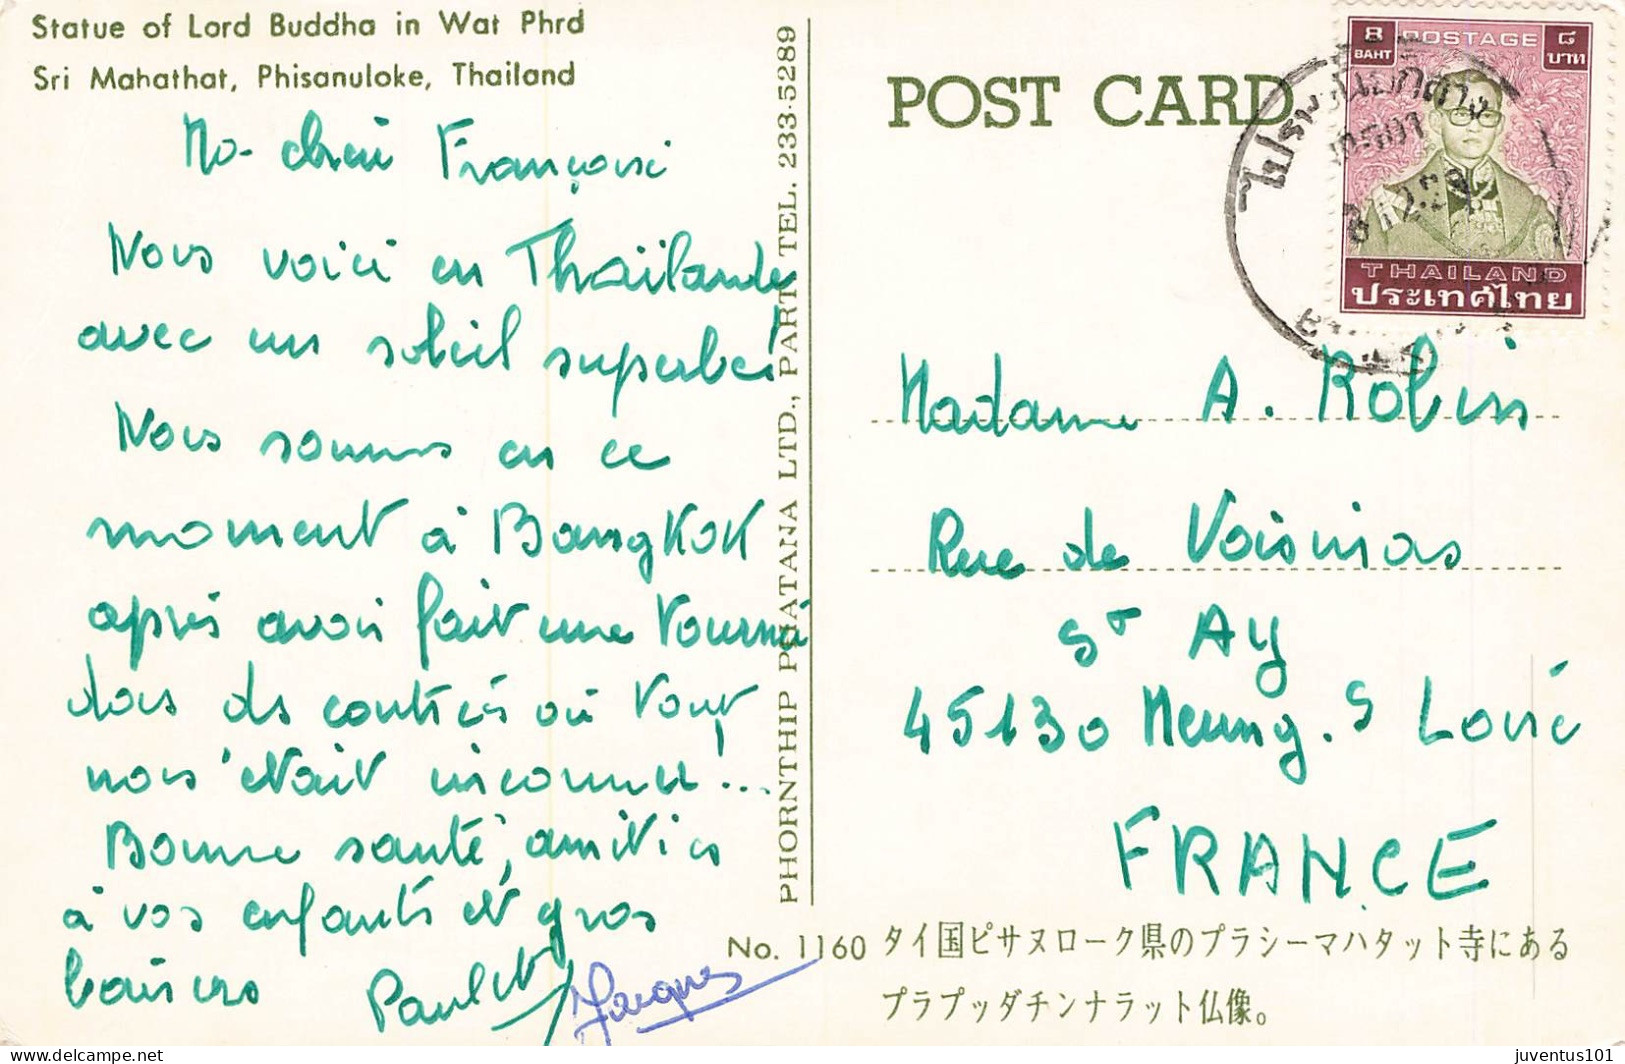 Statue of Lord Buddha in Wat Phrd
Sri Mahathat, Phisanuloke, Thailand
Françoise
Nous voici en Thaïlande
avec un soleil superbe!
Nous sommes en ce
moment à BangKoK
après avoir fait une tournée
dans des contrées où tout
nous était inconnu!...
Bonne santé, amitiés
à vos enfants et gros
baisers Paulet Jacques
PHORNTHIP PHATANA LTD., PART TEL. 233-5289
POST CARD
8 POSTAGE ๘
BAHT บาท
THAILAND
ประเทศไทย
Madame A. Robin
Rue de Voisinas
St Ay
45130 Meung. S Loire
FRANCE
No. 1160 タイ国ピサヌローク県のプラシーマハタット寺にある
プラプッダチンナラット仏像。
delcampe.net
juventus101